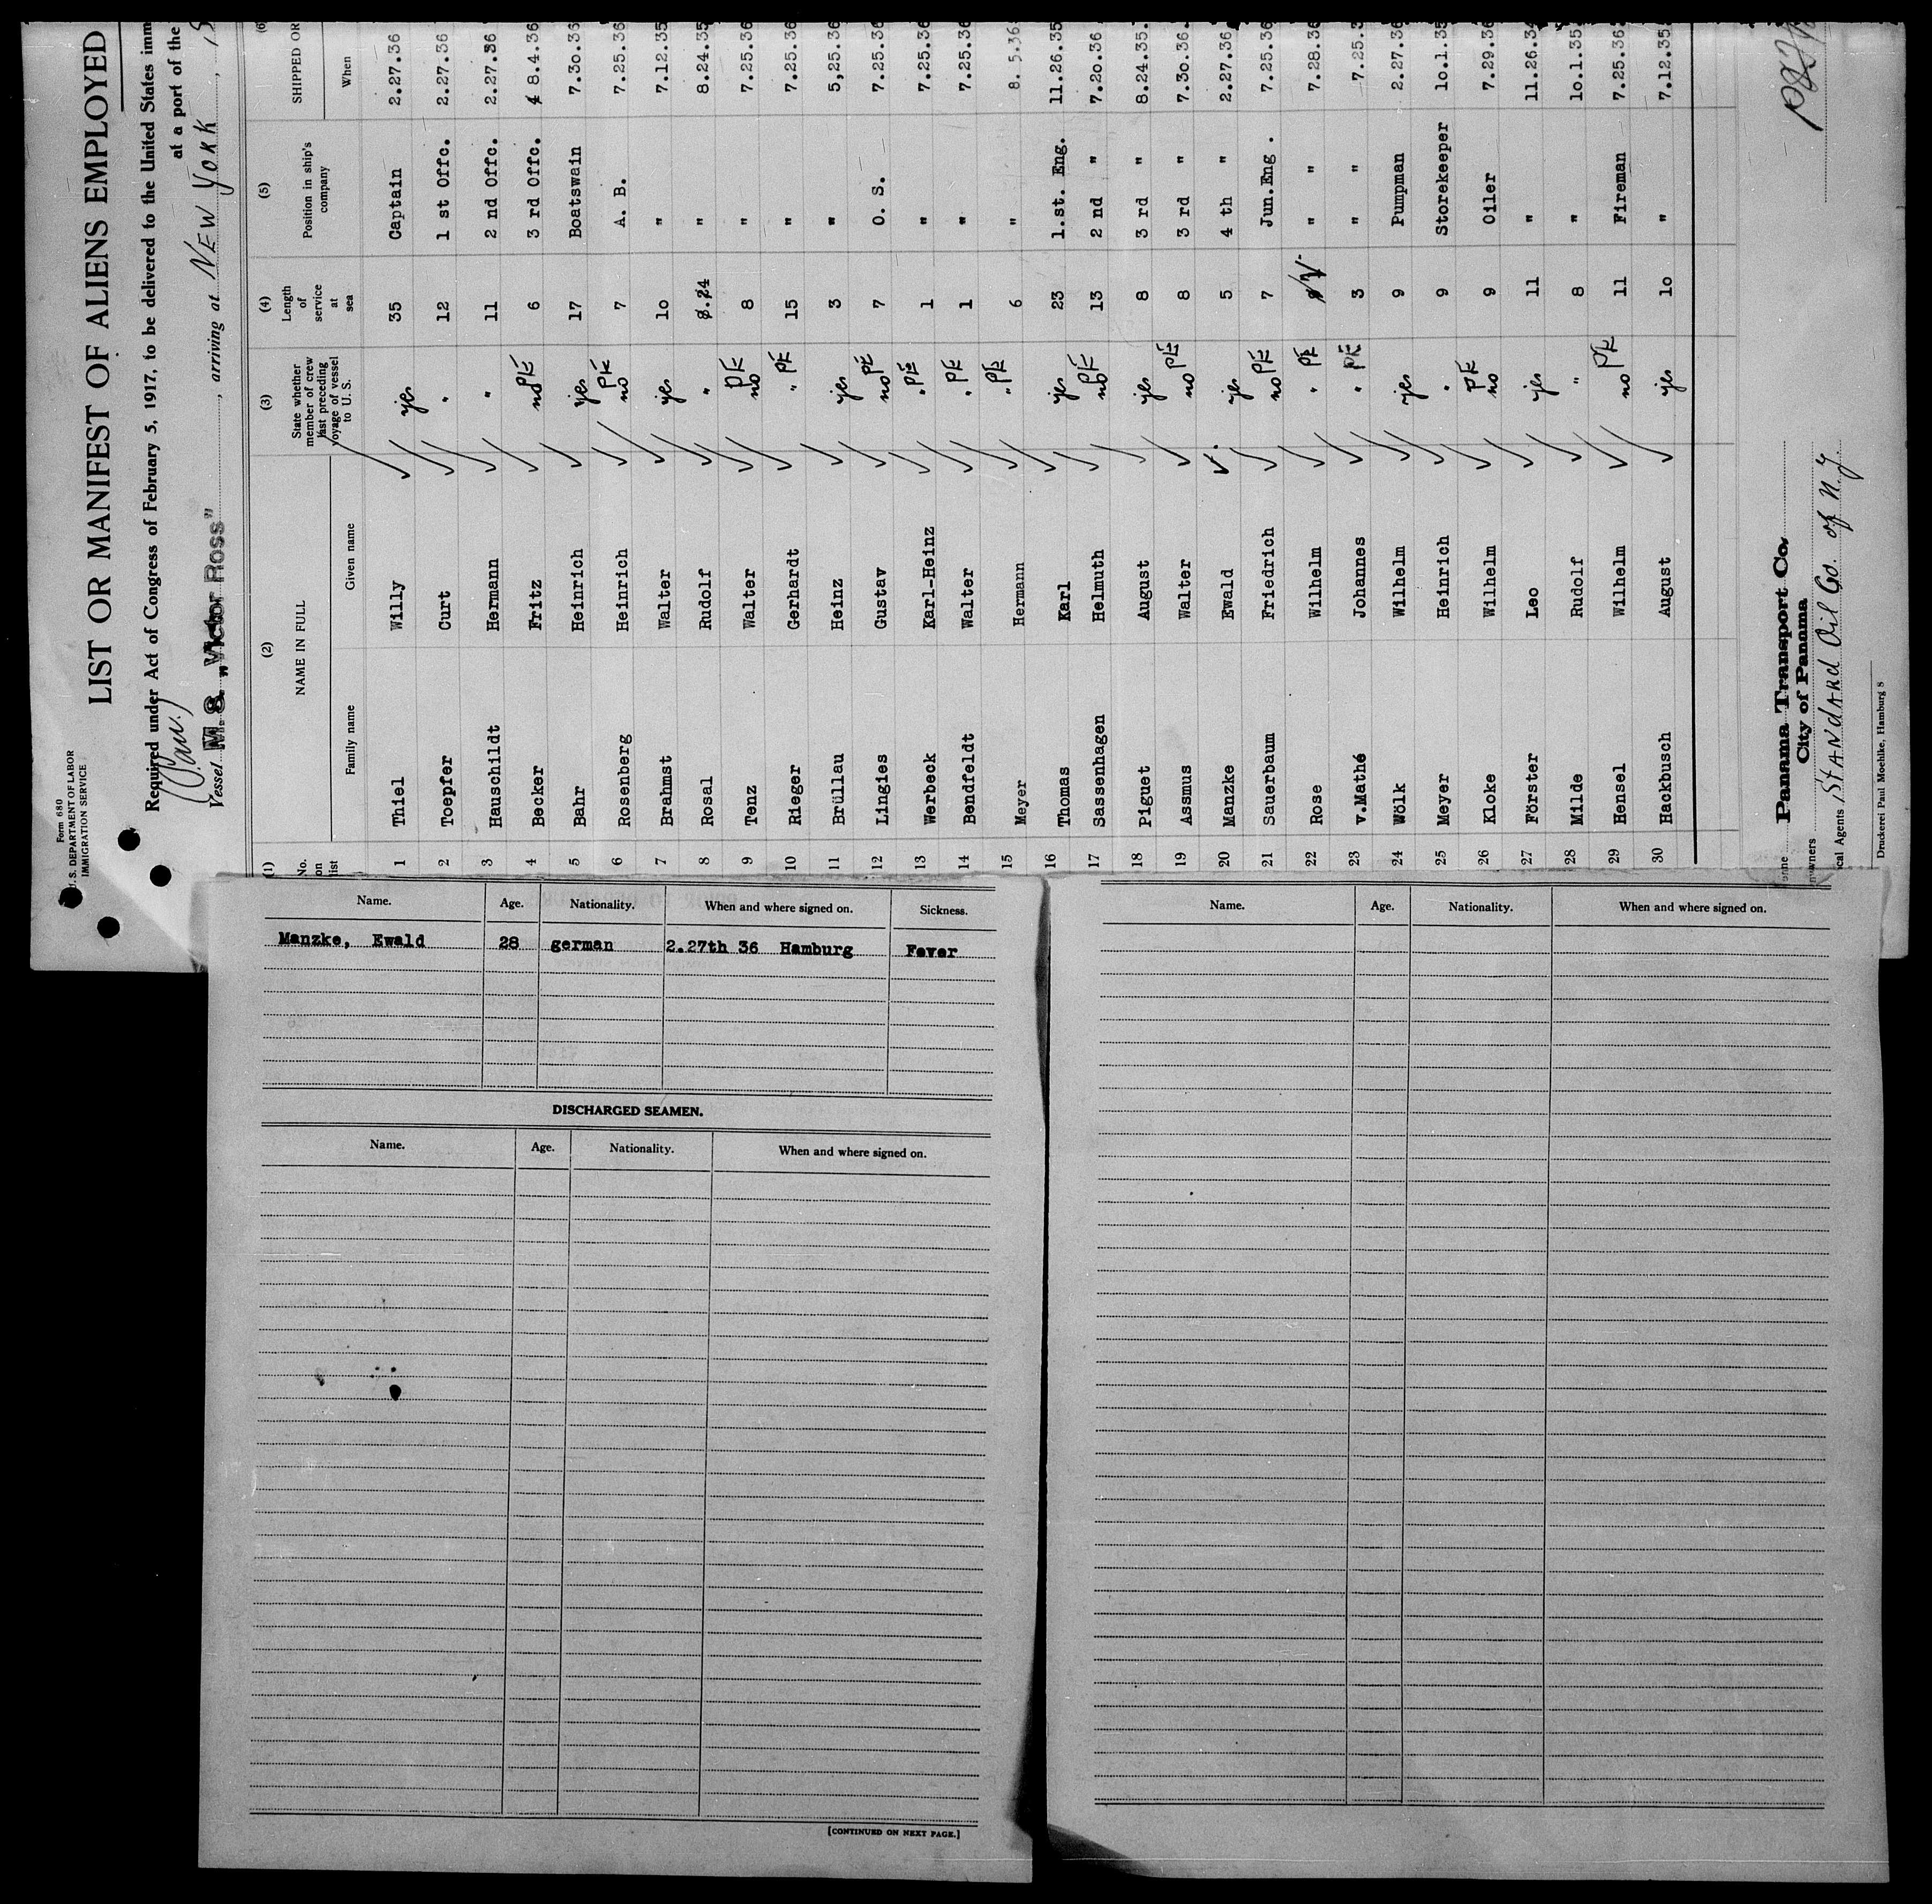 Form 680
U. S. DEPARTMENT OF LABOR
IMMIGRATION SERVICE
LIST OR MANIFEST OF ALIENS EMPLOYED
Required under Act of Congress of February 5, 1917, to be delivered to the United States imm
at a port of the
(Pan.)
Vessel M. S. „Victor Ross" , arriving at NEW YORK , 19
(1) (2) (3) (4) (5) (6)
No. on list NAME IN FULL State whether member of crew last preceding voyage of vessel to U. S. Length of service at sea Position in ship's company SHIPPED OR
Family name Given name When
1 Thiel Willy yes 35 Captain 2.27.36
2 Toepfer Curt " 12 1 st Offc. 2.27.36
3 Hauschildt Hermann " 11 2 nd Offc. 2.27.36
4 Becker Fritz no PE 6 3 rd Offc. 8.4.36
5 Bahr Heinrich yes 17 Boatswain 7.30.36
6 Rosenberg Heinrich no PE 7 A. B. 7.25.36
7 Brahmst Walter yes 10 " 7.12.35
8 Rosal Rudolf " " 8.24.35
9 Tenz Walter no PE 8 " 7.25.36
10 Rieger Gerhardt " PE 15 " 7.25.36
11 Brüllau Heinz yes 3 " 5,25.36
12 Lingies Gustav no PE 7 O. S. 7.25.36
13 Werbeck Karl-Heinz " PE 1 " 7.25.36
14 Bendfeldt Walter " PE 1 " 7.25.36
15 Meyer Hermann " PE 6 " 8. 5.36
16 Thomas Karl yes 23 1.st. Eng. 11.26.35
17 Sassenhagen Helmuth no PE 13 2 nd " 7.20.36
18 Piguet August yes 8 3 rd " 8.24.35.
19 Assmus Walter no PE 8 3 rd " 7.30.36.
20 Manzke Ewald yes 5 4 th " 2.27.36
21 Sauerbaum Friedrich no PE 7 Jun.Eng . 7.25.36
22 Rose Wilhelm " PE " " 7.28.36
23 v.Mathé Johannes " PE 3 " " 7.25.3
24 Wölk Wilhelm yes 9 Pumpman 2.27.36
25 Meyer Heinrich " 9 Storekeeper 10.1.35
26 Kloke Wilhelm no PE 9 Oiler 7.29.36
27 Förster Leo yes 11 " 11.26.34
28 Milde Rudolf " 8 " 10.1.35
29 Hensel Wilhelm no PE 11 Fireman 7.25.36
30 Hackbusch August yes 10 " 7.12.35
Panama Transport Co.
owners City of Panama
cal Agents STANDARD Oil Co. of N.J.
Druckerei Paul Moehlke, Hamburg 8
Name. Age. Nationality. When and where signed on. Sickness.
Manzke, Ewald 28 german 2.27th 36 Hamburg Fever
DISCHARGED SEAMEN.
Name. Age. Nationality. When and where signed on.
[CONTINUED ON NEXT PAGE.]
Name. Age. Nationality. When and where signed on.